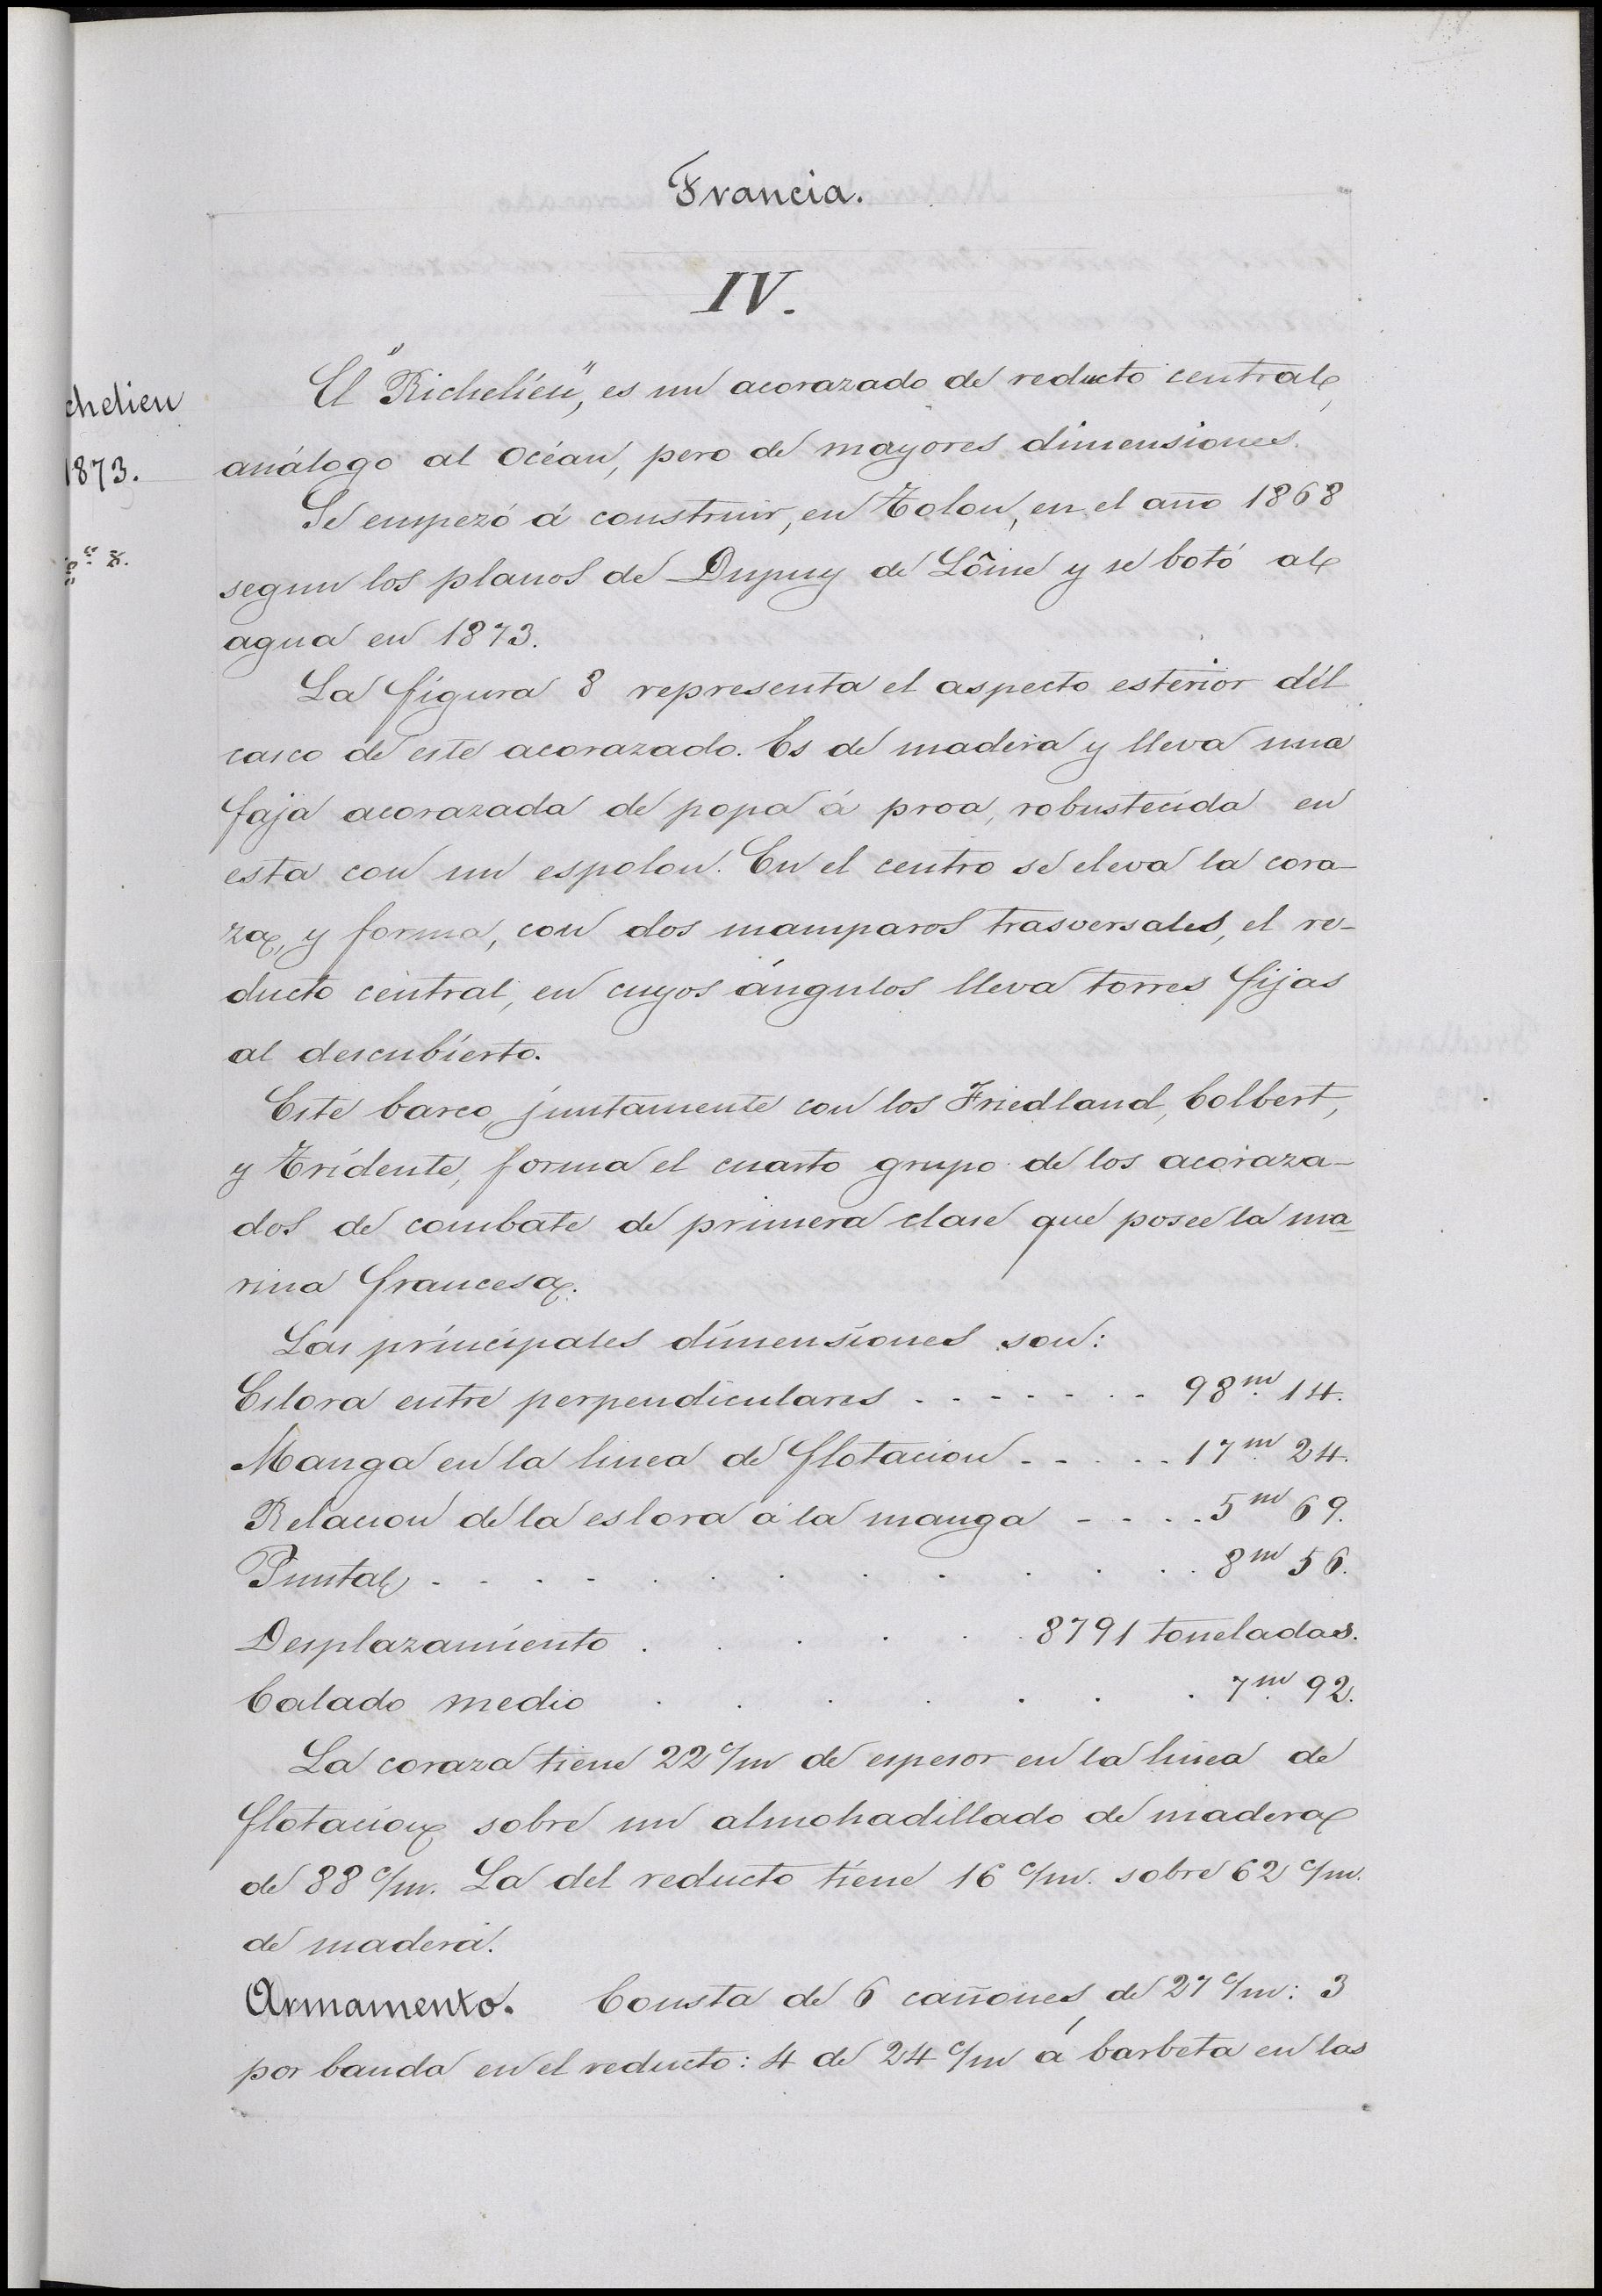 Francia.
IV.
El "Richelieu", es un acorazado de reducto central,
análogo al Océan, pero de mayores dimensiones.
Se empezó á construir, en Tolon, en el año 1868
segun los planos de Dupuy de Lôme y se botó al
agua en 1873.
La figura 8 representa el aspecto esterior del
casco de este acorazado. Es de madera y lleva una
faja acorazada de popa á proa, robustecida en
esta con un espolon. En el centro se eleva la cora-
za, y forma, con dos mamparos trasversales, el re-
ducto central, en cuyos ángulos lleva torres fijas
al descubierto.
Este barco, juntamente con los Friedland, Colbert,
y Tridente, forma el cuarto grupo de los acoraza-
dos de combate de primera clase que posee la ma-
rina francesa.
Las principales dimensiones son:
Eslora entre perpendiculares . . . . . . . 98m. 14.
Manga en la linea de flotacion . . . . . 17m. 24.
Relacion de la eslora á la manga . . . . 5m 69.
Puntal . . . . . . . . . . . . 8m 56.
Desplazamiento . . . . . . 8791 toneladas.
Calado medio . . . . . . . 7m. 92.
La coraza tiene 22 c/m de espesor en la linea de
flotacion sobre un almohadillado de madera
de 88 c/m. La del reducto tiene 16 c/m. sobre 62 c/m.
de madera.
Armamento. Consta de 6 cañones, de 27 c/m: 3
por banda en el reducto: 4 de 24 c/m á barbeta en las
chelieu
1873.
8.